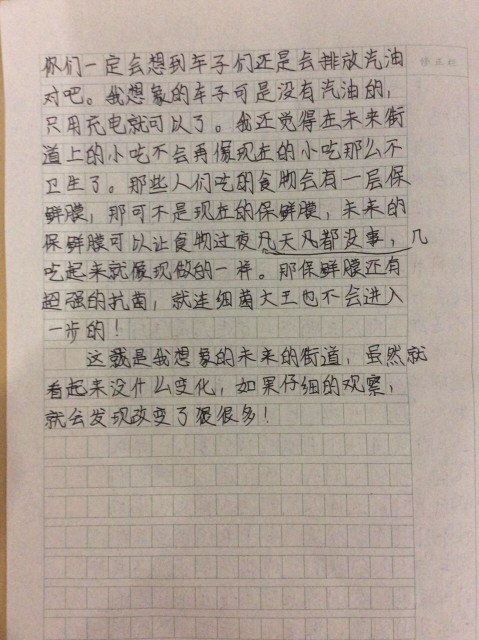 你们一定会想到车子们还是会排放汽油
对吧。我想象的车子可是没有汽油的，
只用充电就可以了。我还觉得在未来街
道上的小吃不会再像现在的小吃那么不
卫生了。那些人们吃的食物会有一层保
鲜膜，那可不是现在的保鲜膜，未来的
保鲜膜可以让食物过夜几天几都没事，几
吃起来就像现做的一样。那保鲜膜还有
超强的抗菌，就连细菌大王也不会进入
一步的！
这就是我想象的未来的街道，虽然就
看起来没什么变化，如果仔细的观察，
就会发现改变了很很多！